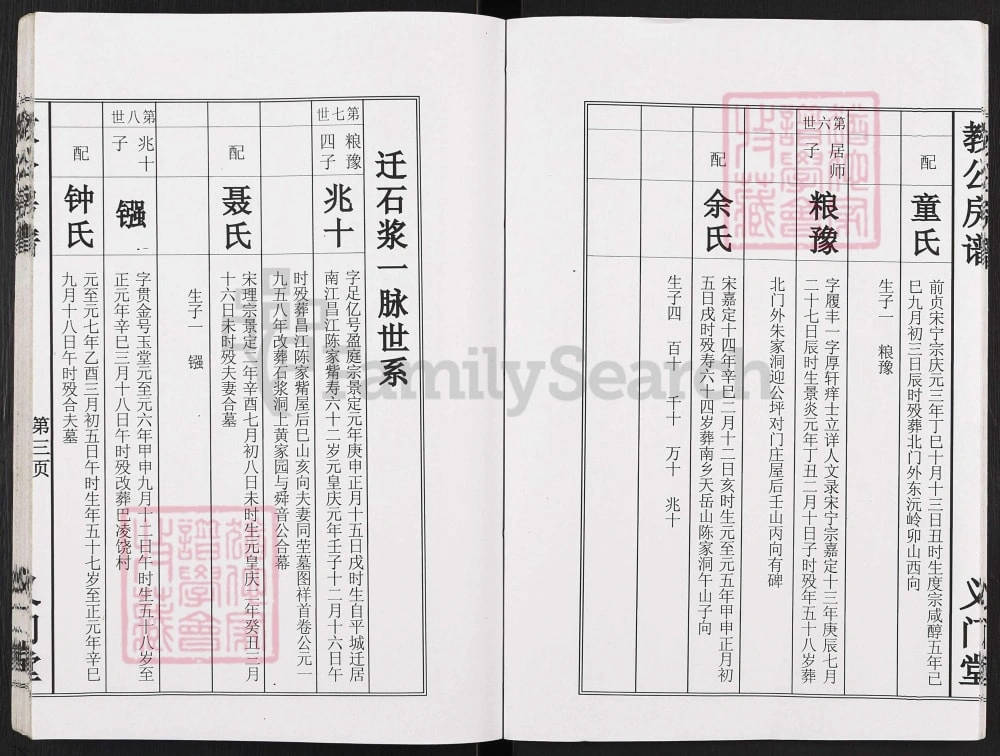 教公房谱
义门堂
配
童氏
前贞宋宁宗庆元三年丁巳十月十三日丑时生度宗咸醇五年己
巳九月初三日辰时殁葬北门外东沅岭卯山西向
生子一　粮豫
第六世
居师
子
粮豫
字履丰一字厚轩痒士立详人文录宋宁宗嘉定十三年庚辰七月
二十七日辰时生景炎元年丁丑二月十日子时殁年五十八岁葬
北门外朱家洞迎公坪对门庄屋后壬山丙向有碑
配
余氏
宋嘉定十四年辛巳二月十二日亥时生元至元五年甲申正月初
五日戌时殁寿六十四岁葬南乡天岳山陈家洞午山子向
生子四　百十　千十　万十　兆十
迁石浆一脉世系
第七世
粮豫
四子
兆十
字足亿号盈庭宗景定元年庚申正月十五日戌时生自平城迁居
南江昌江陈家觜寿六十二岁元皇庆元年壬子十二月十六日午
时殁葬昌江陈家觜屋后巳山亥向夫妻同茔墓图祥首卷公元一
九五八年改葬石浆洞上黄家园与舜音公合幕
配
聂氏
宋理宗景定二年辛酉七月初八日未时生元皇庆二年癸丑三月
十六日未时殁夫妻合墓
生子一　镪
第八世
兆十
子
镪
字贯金号玉堂元至元六年甲申九月十二日午时生五十八岁至
正元年辛巳三月十八日午时殁改葬巴凌饶村
配
钟氏
元至元七年乙酉三月初五日午时生年五十七岁至正元年辛巳
九月十八日午时殁合夫墓
第三页
FamilySearch